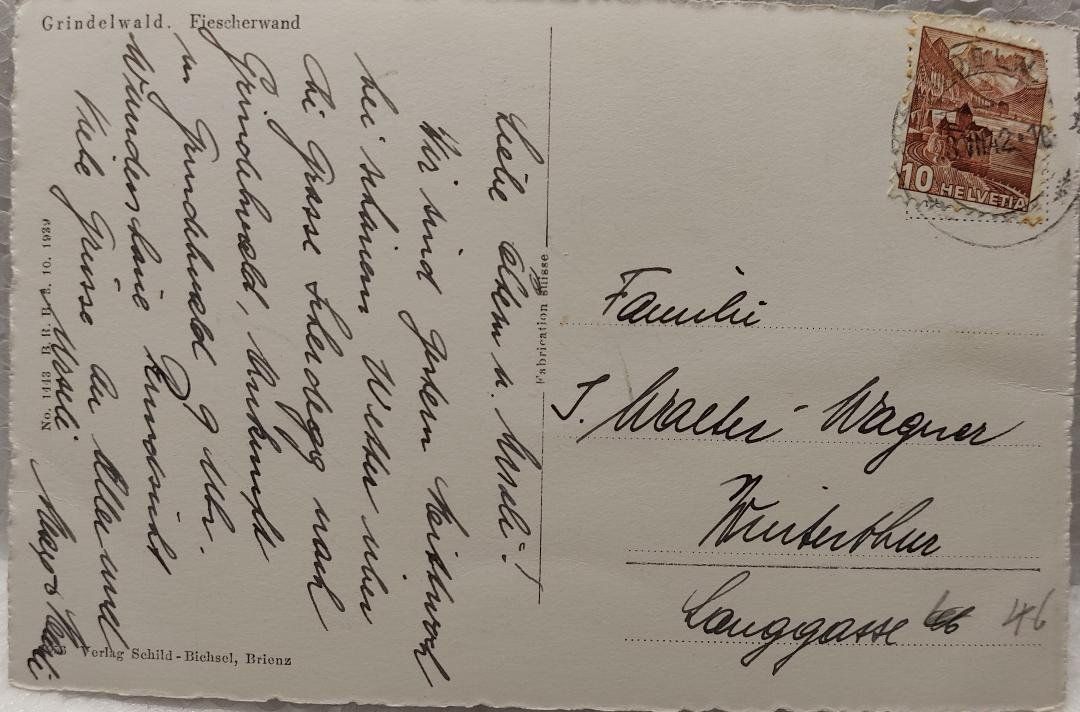 Grindelwald. Fiescherwand
Liebe Eltern u. Urseli!
Wir sind gestern Mittwoch
bei schönem Wetter über
die Grosse Scheidegg nach
Grindelwald, Ankunft
in Grindelwald 9 Uhr.
Wunderschöne Rundsicht
Viele Grüsse an Alle und
Urseli
No. 1443 B. R. B. 3. 10. 1939
6 Verlag Schild-Bichsel, Brienz
Fabrication suisse
10 HELVETIA
VIII 42
Familie
J. Walter-Wagner
Winterthur
Langgasse 46